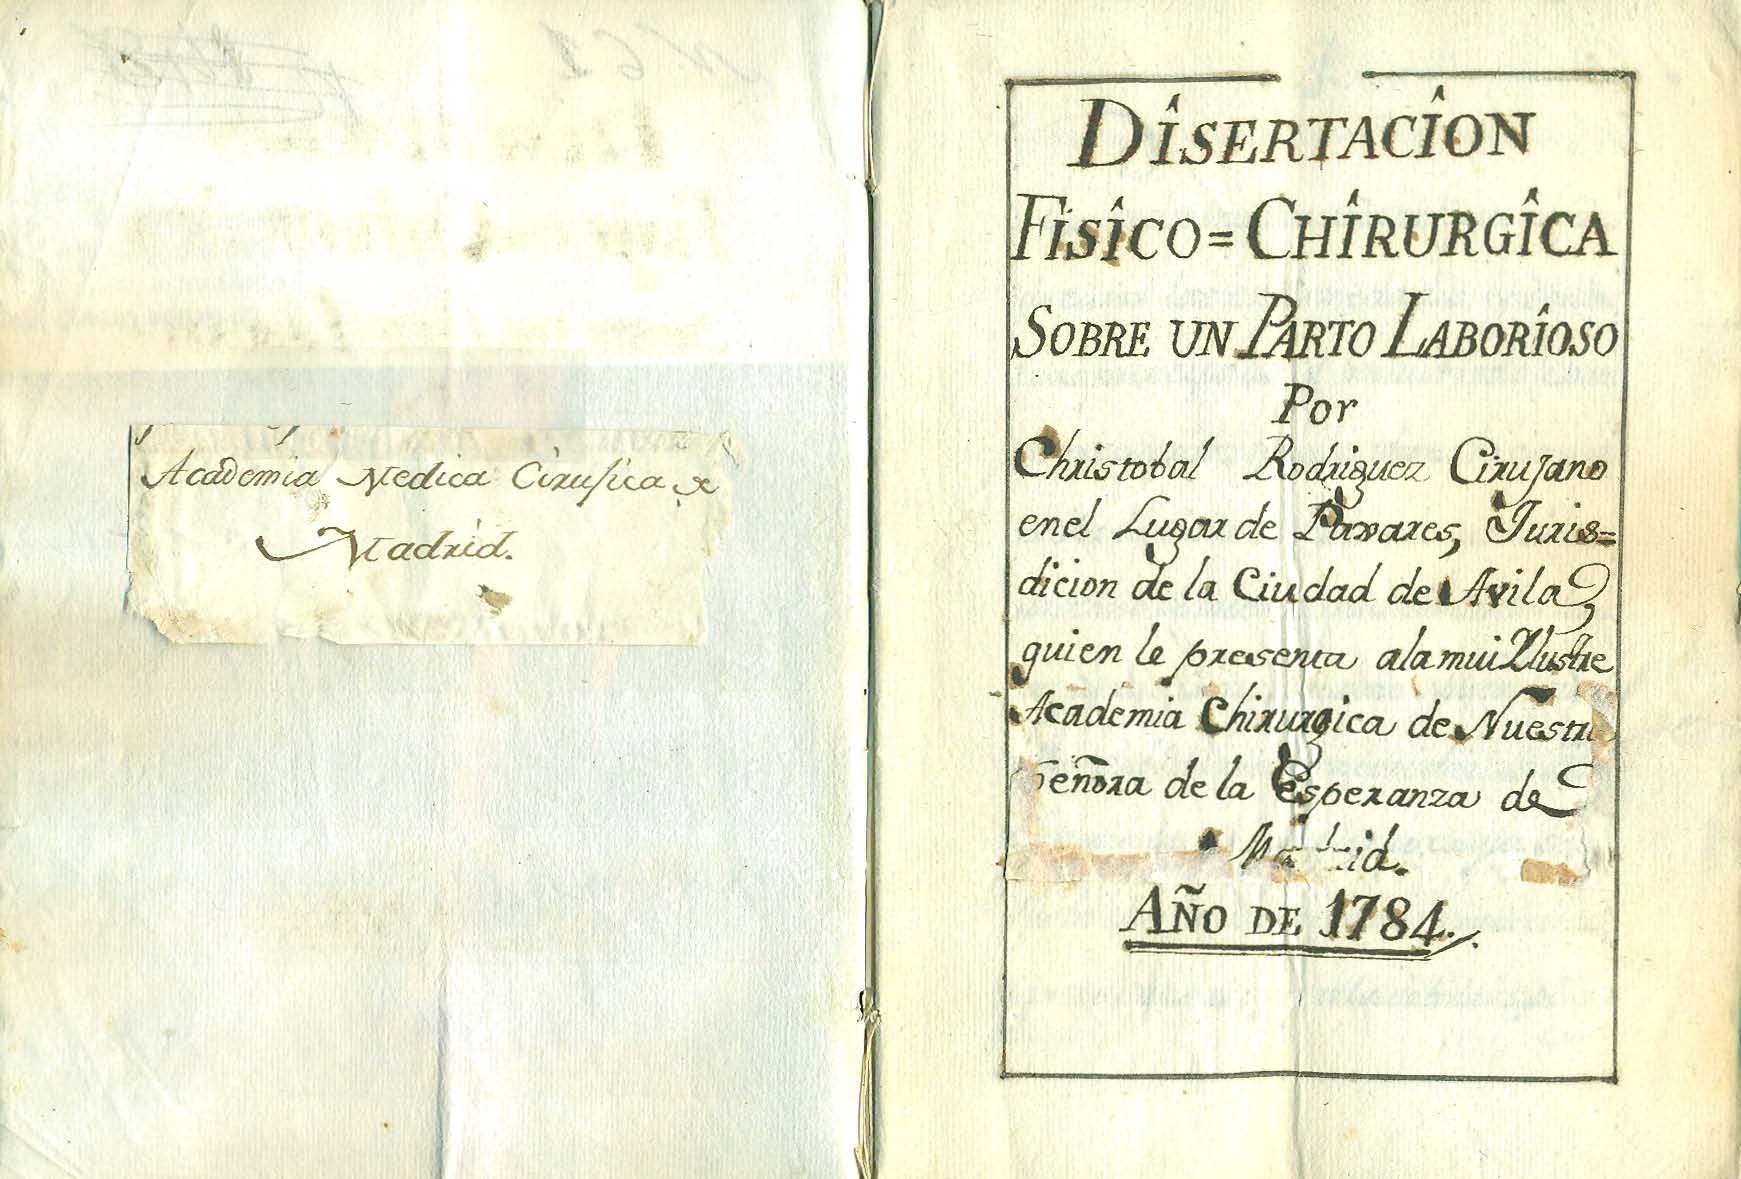 Academia Medica Cirusica de
Madrid.
DISERTACION
FISICO=CHIRURGICA
SOBRE UN PARTO LABORIOSO
Por
Christobal Rodriguez Cirujano
en el Lugar de Pavares, Juris=
dicion de la Ciudad de Avila,
quien le presenta a la mui Illustre
Academia Chirurgica de Nuestra
Señora de la Esperanza de
Madrid.
AÑO DE 1784.